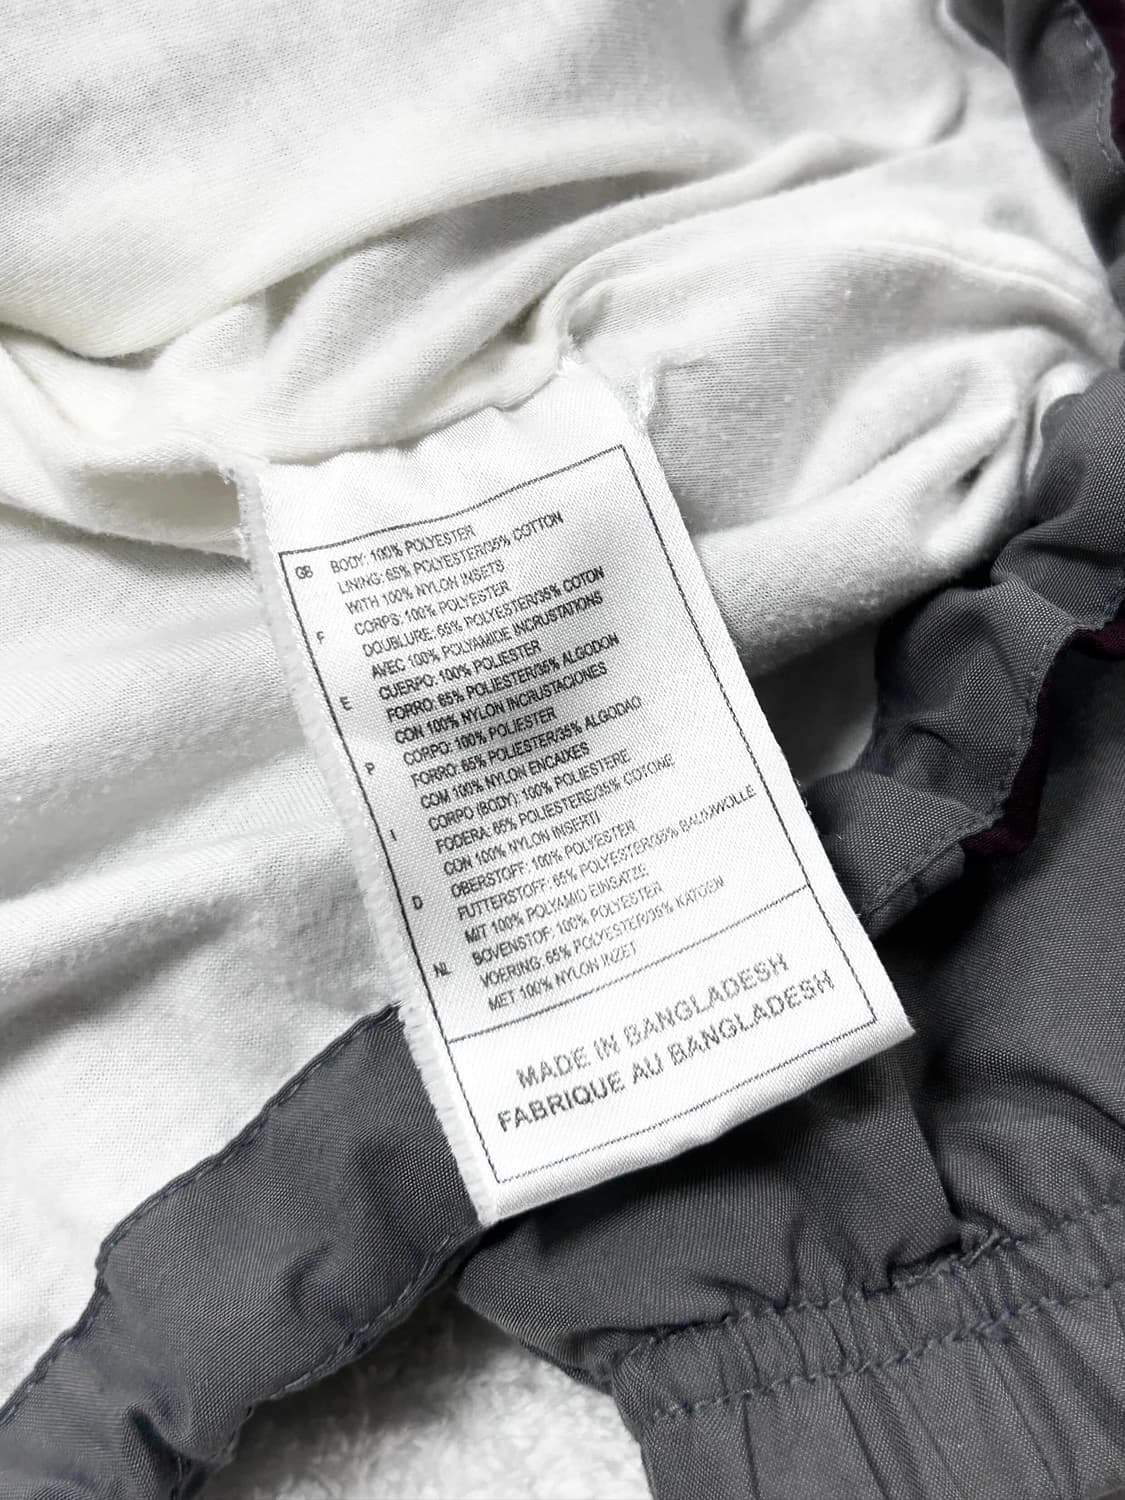 GB BODY: 100% POLYESTER
LINING: 65% POLYESTER/35% COTTON
WITH 100% NYLON INSETS
F CORPS: 100% POLYESTER
DOUBLURE: 65% POLYESTER/35% COTON
AVEC 100% POLYAMIDE INCRUSTATIONS
E CUERPO: 100% POLIESTER
FORRO: 65% POLIESTER/35% ALGODON
CON 100% NYLON INCRUSTACIONES
P CORPO: 100% POLIESTER
FORRO: 65% POLIESTER/35% ALGODAO
COM 100% NYLON ENCAIXES
I CORPO (BODY): 100% POLIESTERE
FODERA: 65% POLIESTERE/35% COTONE
CON 100% NYLON INSERTI
D OBERSTOFF: 100% POLYESTER
FUTTERSTOFF: 65% POLYESTER/35% BAUMWOLLE
MIT 100% POLYAMID EINSATZE
NL BOVENSTOF: 100% POLYESTER
VOERING: 65% POLYESTER/35% KATOEN
MET 100% NYLON INZET
MADE IN BANGLADESH
FABRIQUE AU BANGLADESH